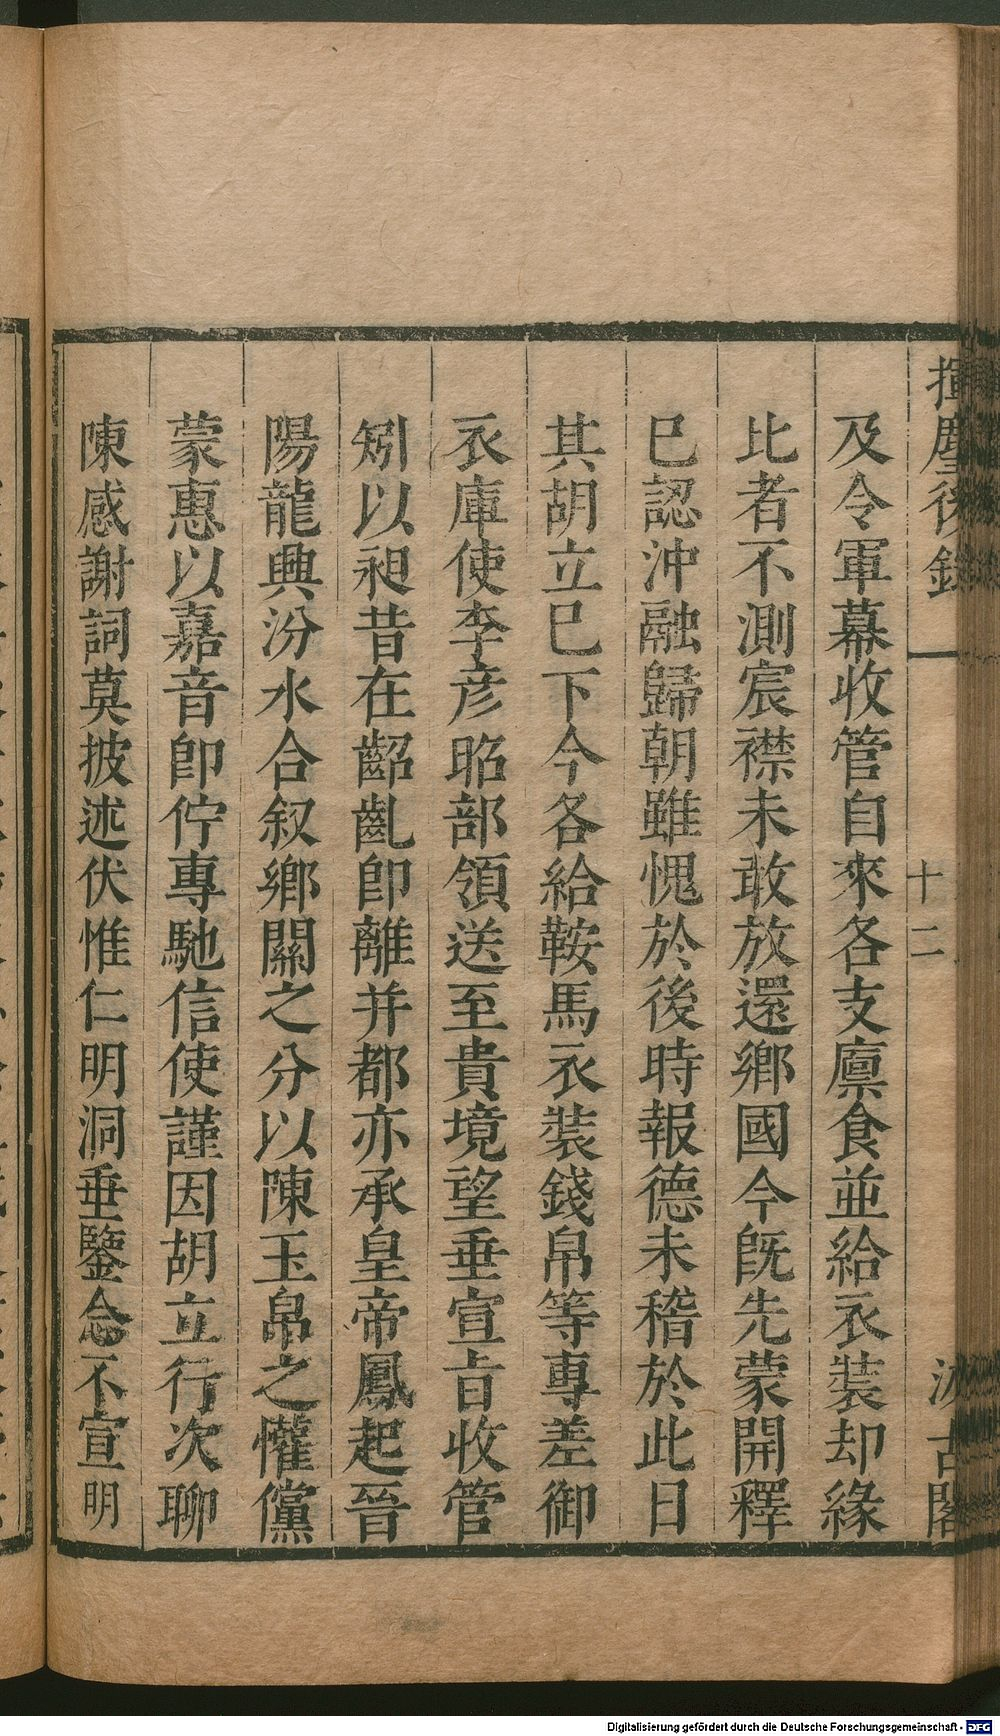 揮麈後錄
十二
汲古閣
及令軍幕收管自來各支廪食並給衣裝却緣
比者不測宸襟未敢放還鄉國今旣先蒙開釋
已認沖融歸朝雖愧於後時報德未稽於此日
其胡立已下今各給鞍馬衣裝錢帛等專差御
衣庫使李彥昭部領送至貴境望垂宣旨收管
矧以昶昔在齠亂卽離并都亦承皇帝鳳起晉
陽龍興汾水合叙鄉關之分以陳玉帛之懽儻
蒙惠以嘉音卽佇專馳信使謹因胡立行次聊
陳感謝詞莫披述伏惟仁明洞垂鑒念不宣明
Digitalisierung gefördert durch die Deutsche Forschungsgemeinschaft - DFG